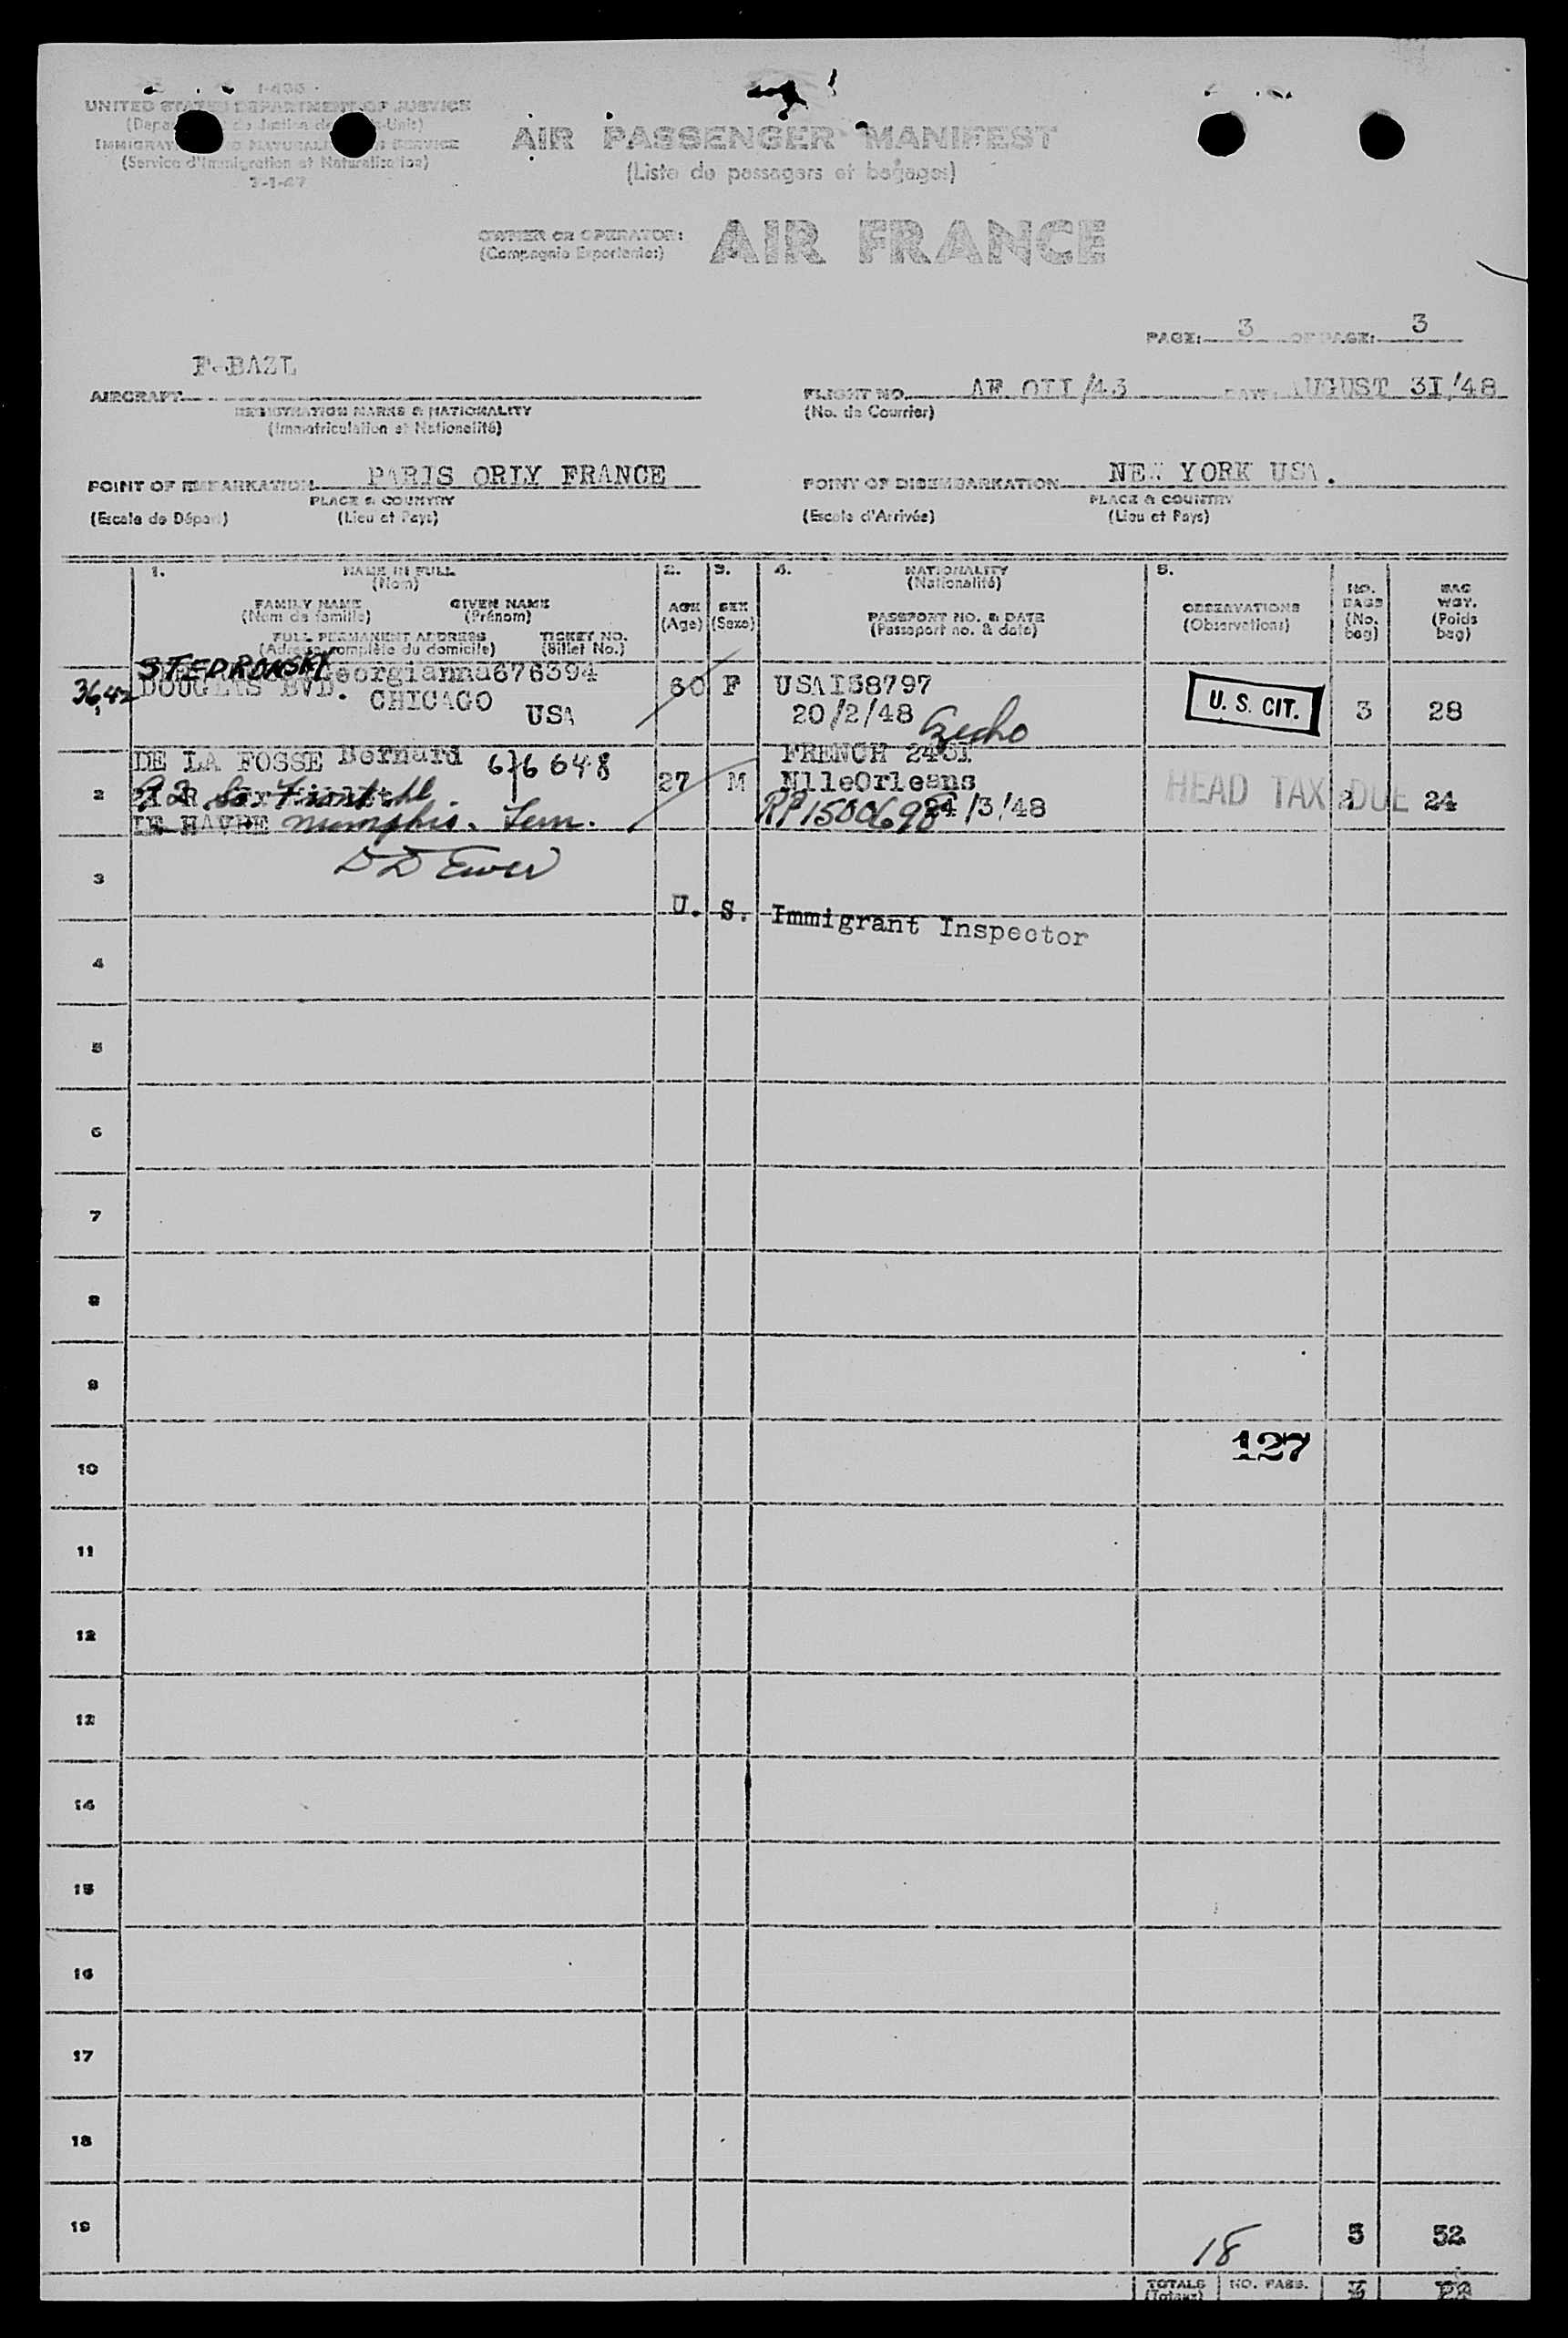 I-466
UNITED STATES DEPARTMENT OF JUSTICE
IMMIGRATION AND NATURALIZATION SERVICE
(Service d'Immigration et Naturalisation)
AIR PASSENGER MANIFEST
(Liste de passagers et bagages)
OWNER OR OPERATOR: AIR FRANCE
PAGE: 3 OF PAGE: 3
F-BAZL
AIRCRAFT
REGISTRATION MARKS & NATIONALITY
(Immatriculation et Nationalité)
FLIGHT NO. AF OII/43 DATE: AUGUST 3I,'48
(No. de Courrier)
POINT OF EMBARKATION PARIS ORLY FRANCE
PLACE & COUNTRY
(Escale de Départ) (Lieu et Pays)
POINT OF DISEMBARKATION NEW YORK USA.
PLACE & COUNTRY
(Escale d'Arrivée) (Lieu et Pays)
1. NAME IN FULL
(Nom)
FAMILY NAME GIVEN NAME
(Nom de famille) (Prénom)
FULL PERMANENT ADDRESS TICKET NO.
(Adresse complète du domicile) (Billet No.)
2. AGE
(Age)
3. SEX
(Sexe)
4. NATIONALITY
(Nationalité)
PASSPORT NO. & DATE
(Passeport no. & date)
5. OBSERVATIONS
(Observations)
NO. BAGS
(No. bag)
BAG WGT.
(Poids bag)
STEDRONSKY Georgianna 676394 60 F USA I38797 U. S. CIT. 3 28
3642 DOUGLAS BVD. CHICAGO USA 20/2/48 Czecho
1
DE LA FOSSE Bernard 676648 27 M FRENCH 2431
2 NlleOrleans HEAD TAX DUE 2 24
LE HAVRE Memphis. Tenn. RP1500698 24/3/'48
3 D D Ewer
U. S. Immigrant Inspector
4
5
6
7
8
9
127
10
11
12
13
14
15
16
17
18
19 18 5 52
TOTALS NO. PASS.
(Totaux)